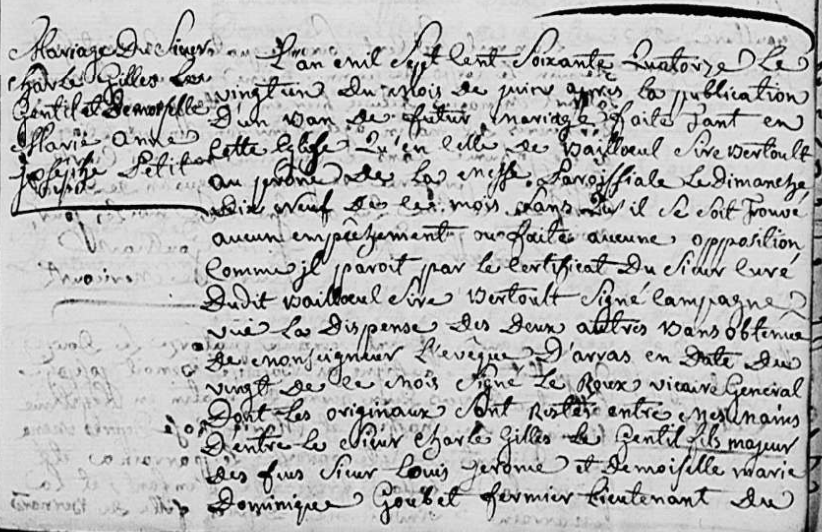 Mariage Du Sieur
Charle Gilles Le
Gentil et Demoiselle
Marie Anne
Josephe Petit
L'an mil Sept Cent Soixante Quatorze Le
vingt un Du mois de juin après La publication
D'un Ban de futur mariage faite Tant en
Cette Eglise Qu'en Celle de Bailloeul Sire Bertoult
au prone De La Messe Paroissiale Le Dimanche
Dix neuf De ce mois sans Qu'il se soit Trouvé
aucun empêchement ou faite aucune opposition
Comme jl paroit par Le Certificat Du Sieur Curé
Dudit Bailloeul Sire Bertoult Signé Campagne
vue La Dispense Des Deux autres Bans obtenue
De Monseigneur L'evêque D'arras en Date Du
vingt De Ce Mois Signé Le Roux vicaire General
Dont Les originaux Sont Restés entre Mes mains
D'entre Le Sieur Charle Gilles Le Gentil fils majeur
Des fius Sieur Louis Jerome et Demoiselle marie
Dominique Goubet fermier Lieutenant Du